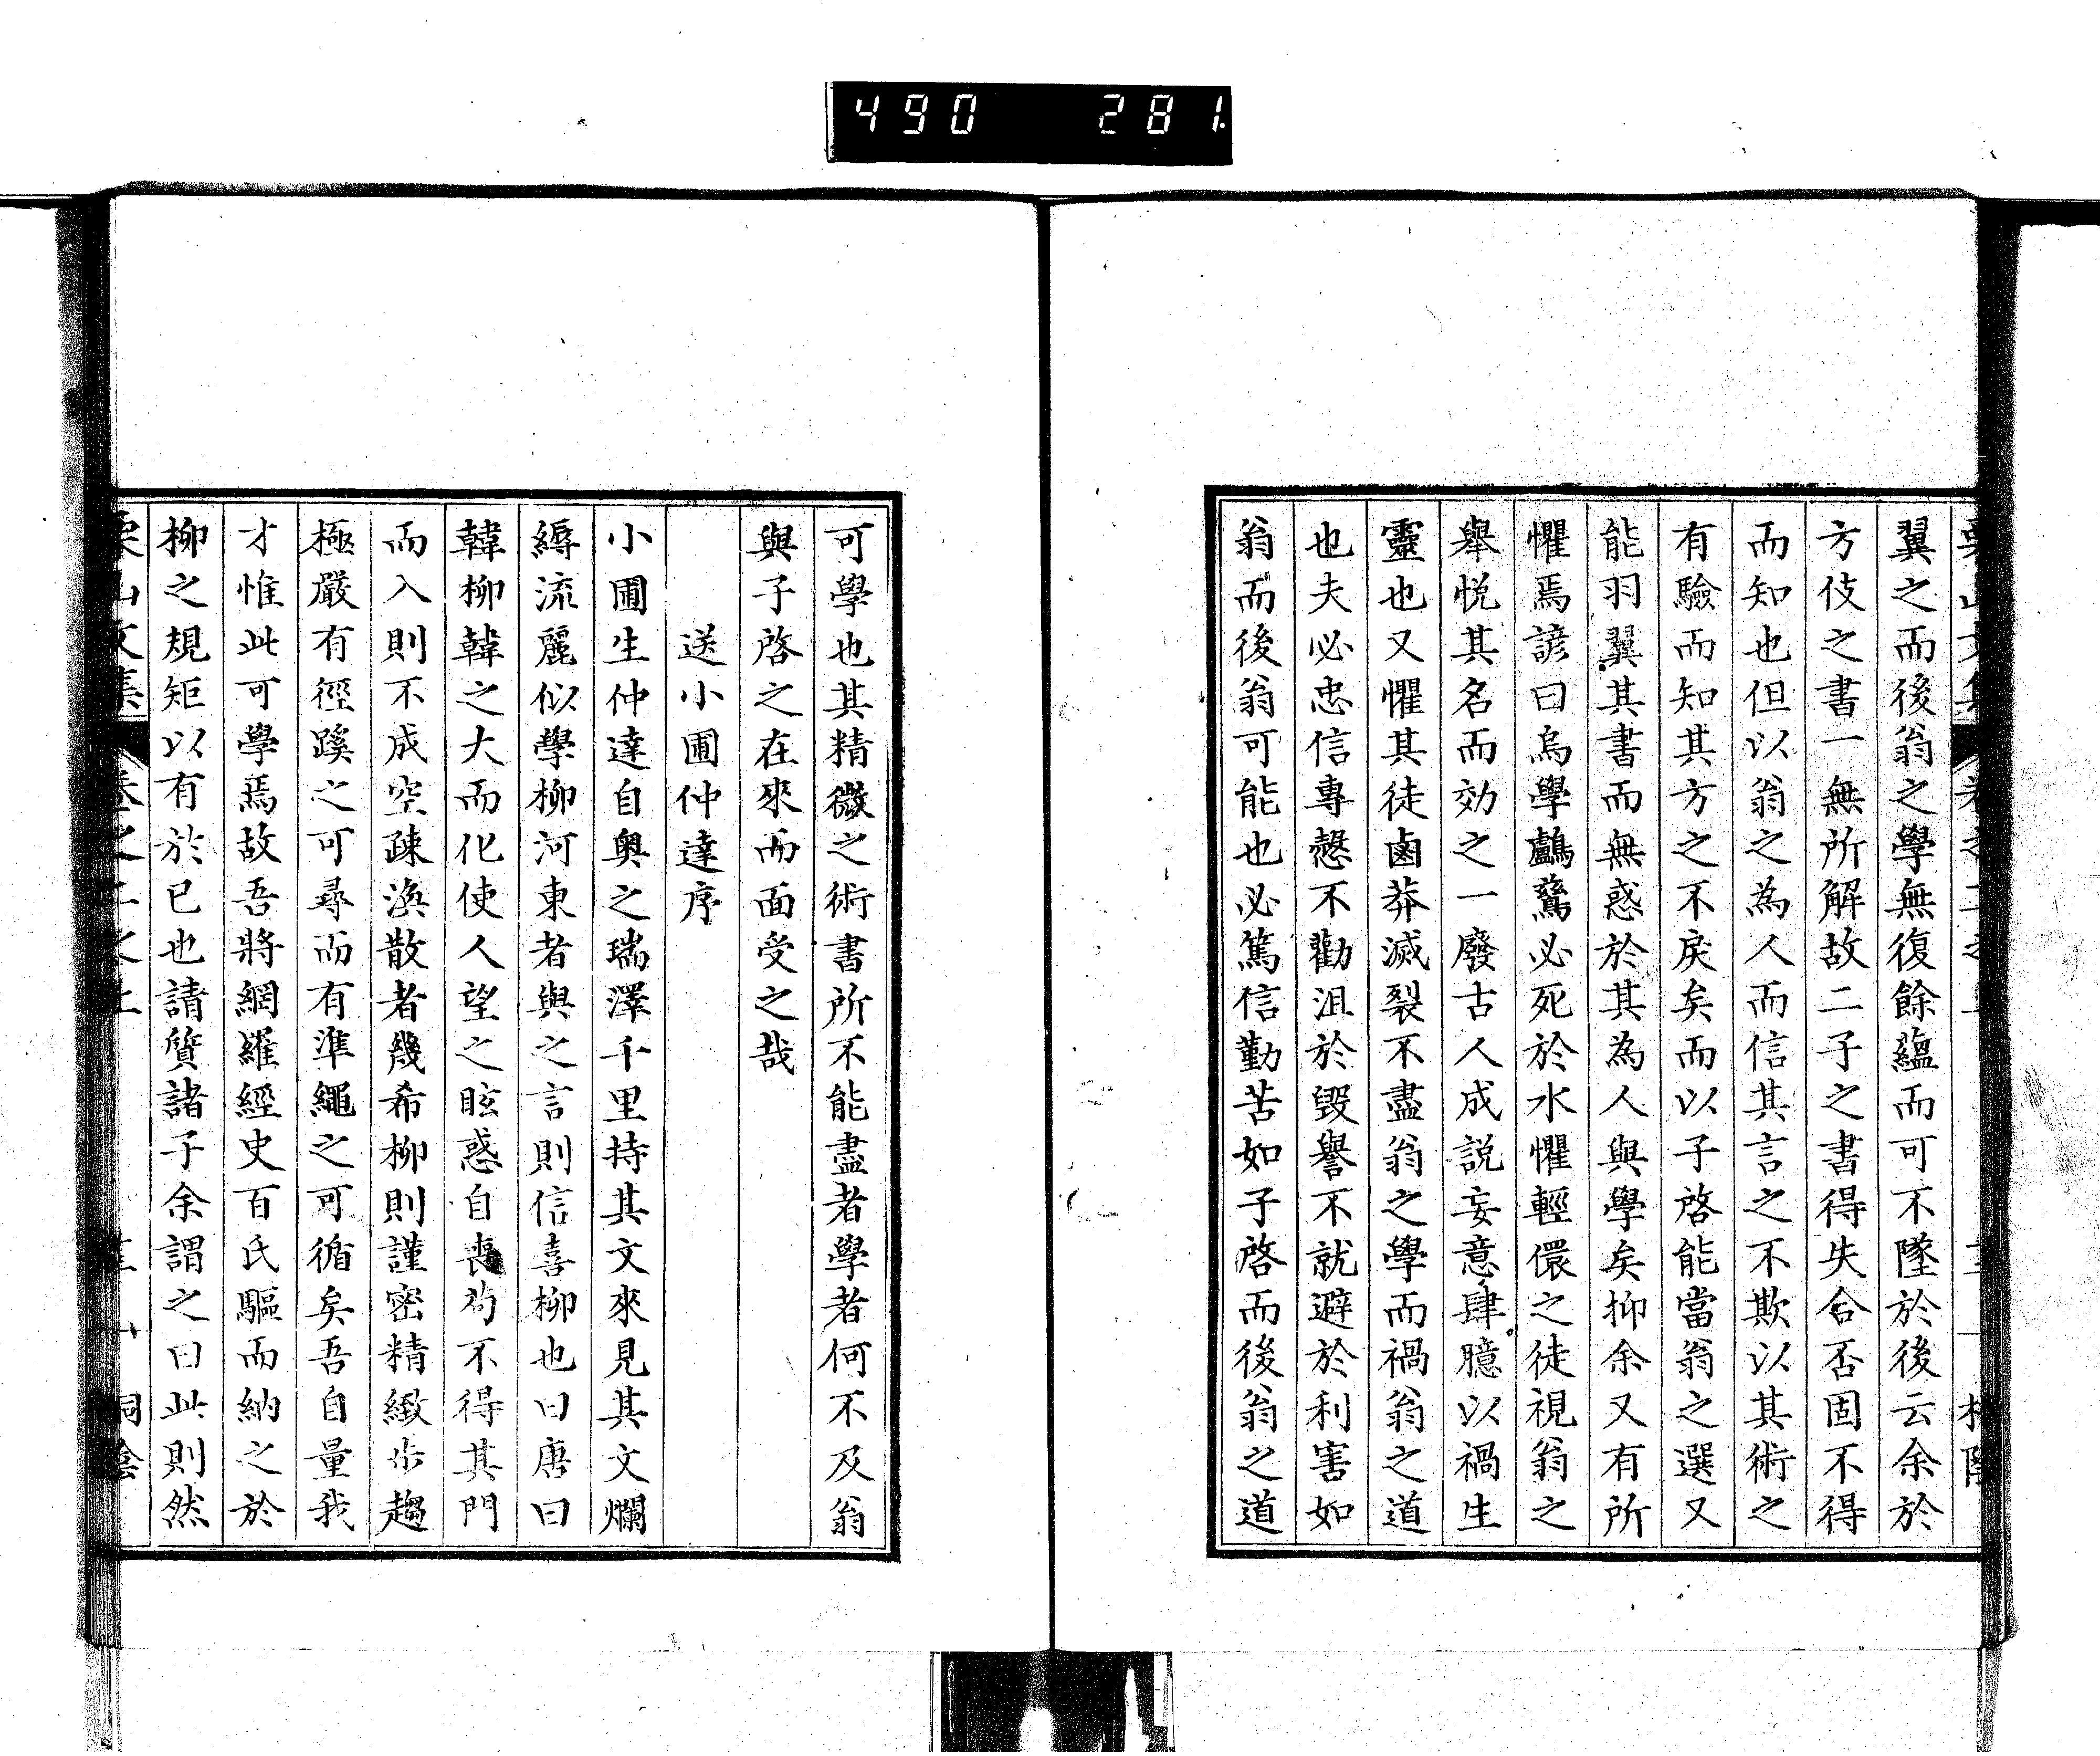 490 281.
翼之而後翁之學無復餘蘊而可不墜於後云余於
方伎之書一無所解故二子之書得失合否固不得
而知也但以翁之為人而信其言之不欺以其術之
有驗而知其方之不戾矣而以子啓能當翁之選又
能羽翼其書而無惑於其為人與學矣抑余又有所
懼焉諺曰烏學鸕鶿必死於水懼輕儇之徒視翁之
舉悅其名而効之一廢古人成説妄意肆臆以禍生
靈也又懼其徒鹵莽滅裂不盡翁之學而禍翁之道
也夫必忠信專慤不勸沮於毀譽不就避於利害如
翁而後翁可能也必篤信勤苦如子啓而後翁之道
可學也其精微之術書所不能盡者學者何不及翁
與子啓之在來而面受之哉
送小圃仲達序
小圃生仲達自奥之瑞澤千里持其文來見其文爛
縟流麗似學柳河東者與之言則信喜柳也曰唐曰
韓柳韓之大而化使人望之眩惑自喪茍不得其門
而入則不成空疎渙散者幾希柳則謹密精緻步趨
極嚴有徑蹊之可尋而有準繩之可循矣吾自量我
才惟此可學焉故吾將網羅經史百氏驅而納之於
柳之規矩以有於已也請質諸子余謂之曰此則然